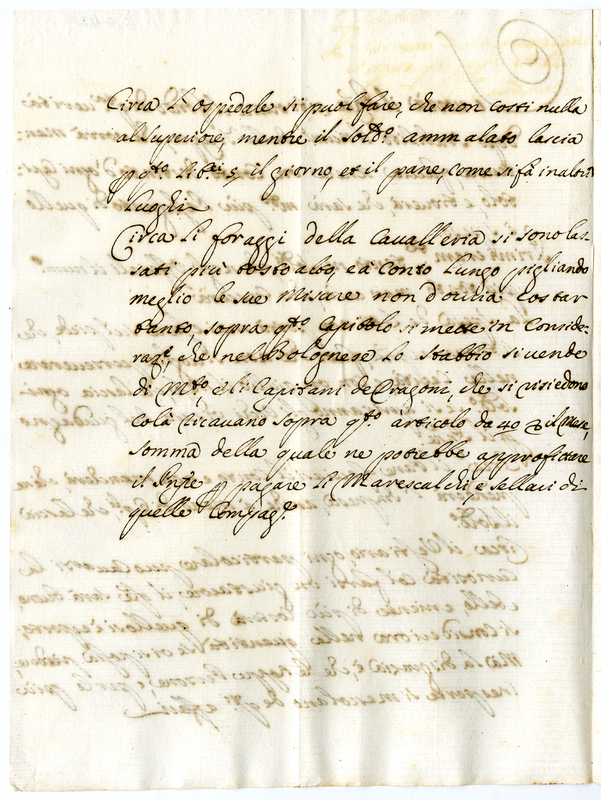 Circa l'ospedale si puol fare, che non costi nulla
al superiore, mentre il sold.º ammalato lascia
p q.to il giorno, et il pane, come si fà in altri
luoghi
Circa li foraggi della Cavalleria si sono las-
sati più tosto alto, e à conto lungo pigliando
meglio le sue misure non dovria costar
tanto, sopra q.to Capitolo si mette in conside-
raz.e, che nel Bolognese lo stabbio si vende
di m.to, e li Capitani de Dragoni, che si risiedono
colà ricavano sopra q.to articolo da 40 il mese,
somma della quale ne potrebbe approfittare
il p pagare li Marescalchi, e sellari di
quelle Compag.e